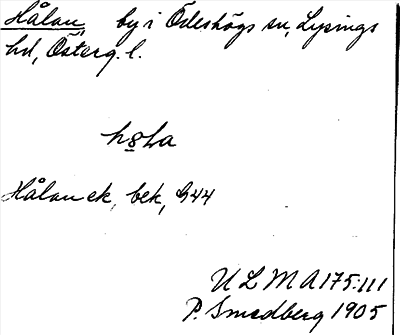 Hålan, by i Ödeshögs sn, Lysings
hd, Österg. l.
Hålan ek, bek, G44
ULMA 175:111
P. Smedberg 1905